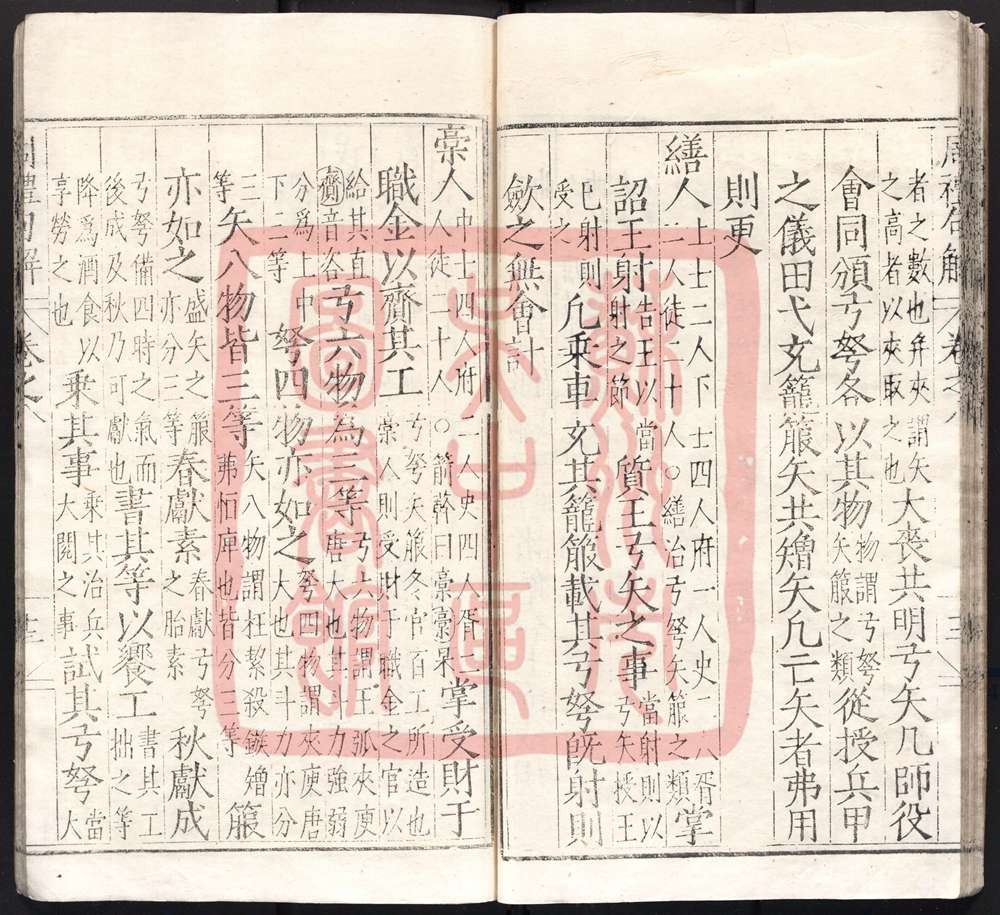 者之數也弁夾謂矢
之高者以夾取之也大喪共明弓矢凡師役
會同頒弓弩各以其物物謂弓弩矢箙之類從授兵甲
之儀田弋充籠箙矢共矰矢凡亡矢者弗用
則更
繕人上士二人下士四人府一人史二人胥二人徒二十人○繕治弓弩矢箙之類掌
詔王射告王以當射之節質王弓矢之事當射則以弓矢授王
已射則受之凡乘車充其籠箙載其弓弩既射則
斂之無會計
槀人中士四人府二人史四人胥二人徒二十人○箭幹曰槀槀杲掌受財于
職金以齎其工弓弩矢箙冬官百工所造也槀人則受財于職金之官以
給其直齎音咨弓六物為三等弓六物謂王弧夾庾唐大也其斗力強弱
分為上中下三等弩四物亦如之弩四物謂夾庾唐大也其斗力亦分
三等矢八物皆三等矢八物謂枉絜殺鍭矰茀恒庳也皆分三等箙
亦如之盛矢之箙亦分三等春獻素春獻弓弩之胎素秋獻成
弓弩備四時之氣而後成及秋乃可獻也書其等以饗工書其工拙之等當
降為酒食以享勞之也乘其事乘其治兵大閱之事試其弓弩大
周禮句解 卷之八
周禮句解 卷之八